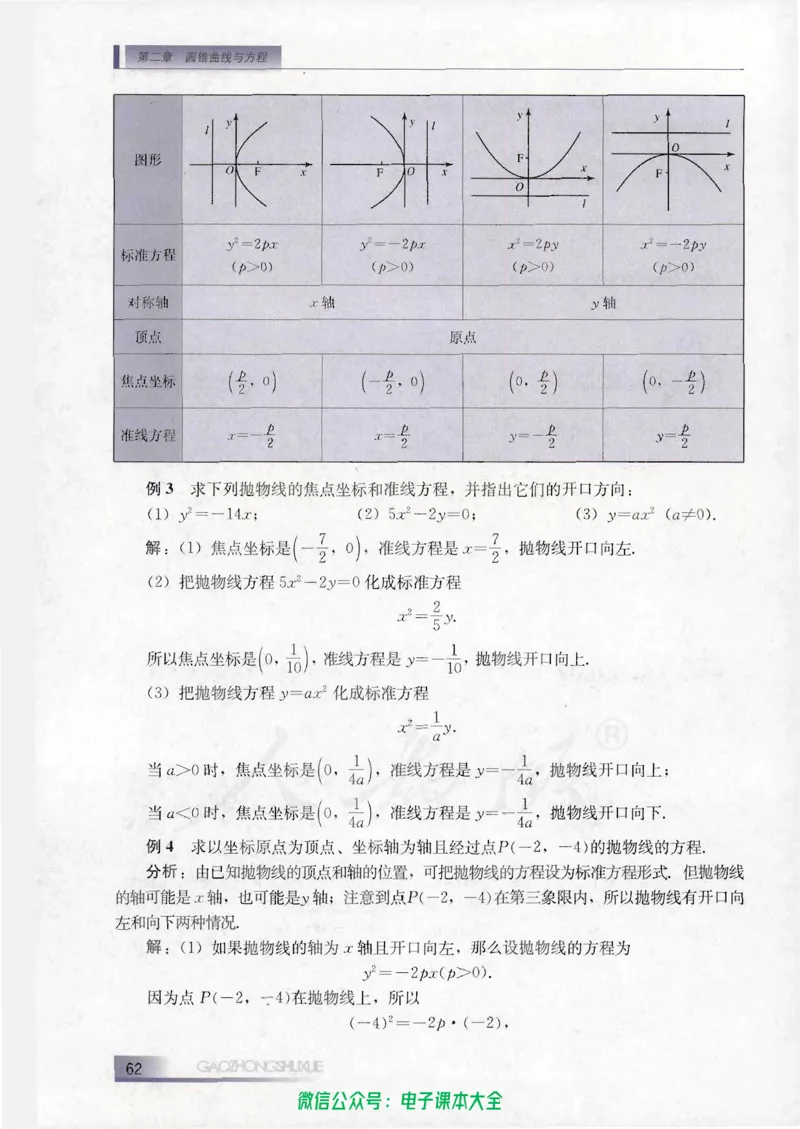 第二章 圆锥曲线与方程
图形
l y O F x
y l F O x
y F O x l
y l O F x
标准方程 y²=2px (p>0) y²=-2px (p>0) x²=2py (p>0) x²=-2py (p>0)
对称轴 x轴 y轴
顶点 原点
焦点坐标 (p/2, 0) (-p/2, 0) (0, p/2) (0, -p/2)
准线方程 x=-p/2 x=p/2 y=-p/2 y=p/2
例3 求下列抛物线的焦点坐标和准线方程，并指出它们的开口方向：
(1) y²=-14x; (2) 5x²-2y=0; (3) y=ax² (a≠0).
解：(1) 焦点坐标是(-7/2, 0)，准线方程是 x=7/2，抛物线开口向左.
(2) 把抛物线方程 5x²-2y=0 化成标准方程
x²=2/5y.
所以焦点坐标是(0, 1/10)，准线方程是 y=-1/10，抛物线开口向上.
(3) 把抛物线方程 y=ax² 化成标准方程
x²=1/a y.
当a>0时，焦点坐标是(0, 1/4a)，准线方程是 y=-1/4a，抛物线开口向上；
当a<0时，焦点坐标是(0, 1/4a)，准线方程是 y=-1/4a，抛物线开口向下.
例4 求以坐标原点为顶点、坐标轴为轴且经过点P(-2, -4)的抛物线的方程.
分析：由已知抛物线的顶点和轴的位置，可把抛物线的方程设为标准方程形式. 但抛物线
的轴可能是x轴，也可能是y轴；注意到点P(-2, -4)在第三象限内，所以抛物线有开口向
左和向下两种情况.
解：(1) 如果抛物线的轴为 x 轴且开口向左，那么设抛物线的方程为
y²=-2px(p>0).
因为点 P(-2, -4)在抛物线上，所以
(-4)²=-2p·(-2),
62 GAOZHONGSHUXUE
微信公众号：电子课本大全